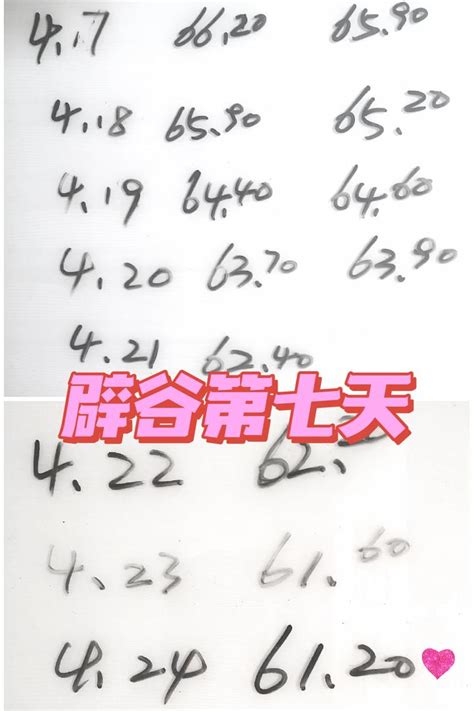 4.17 66.20 65.90
4.18 65.90 65.20
4.19 64.40 64.60
4.20 63.70 63.90
4.21 62.40
辟谷第七天
4.22
4.23 61.60
4.24 61.20